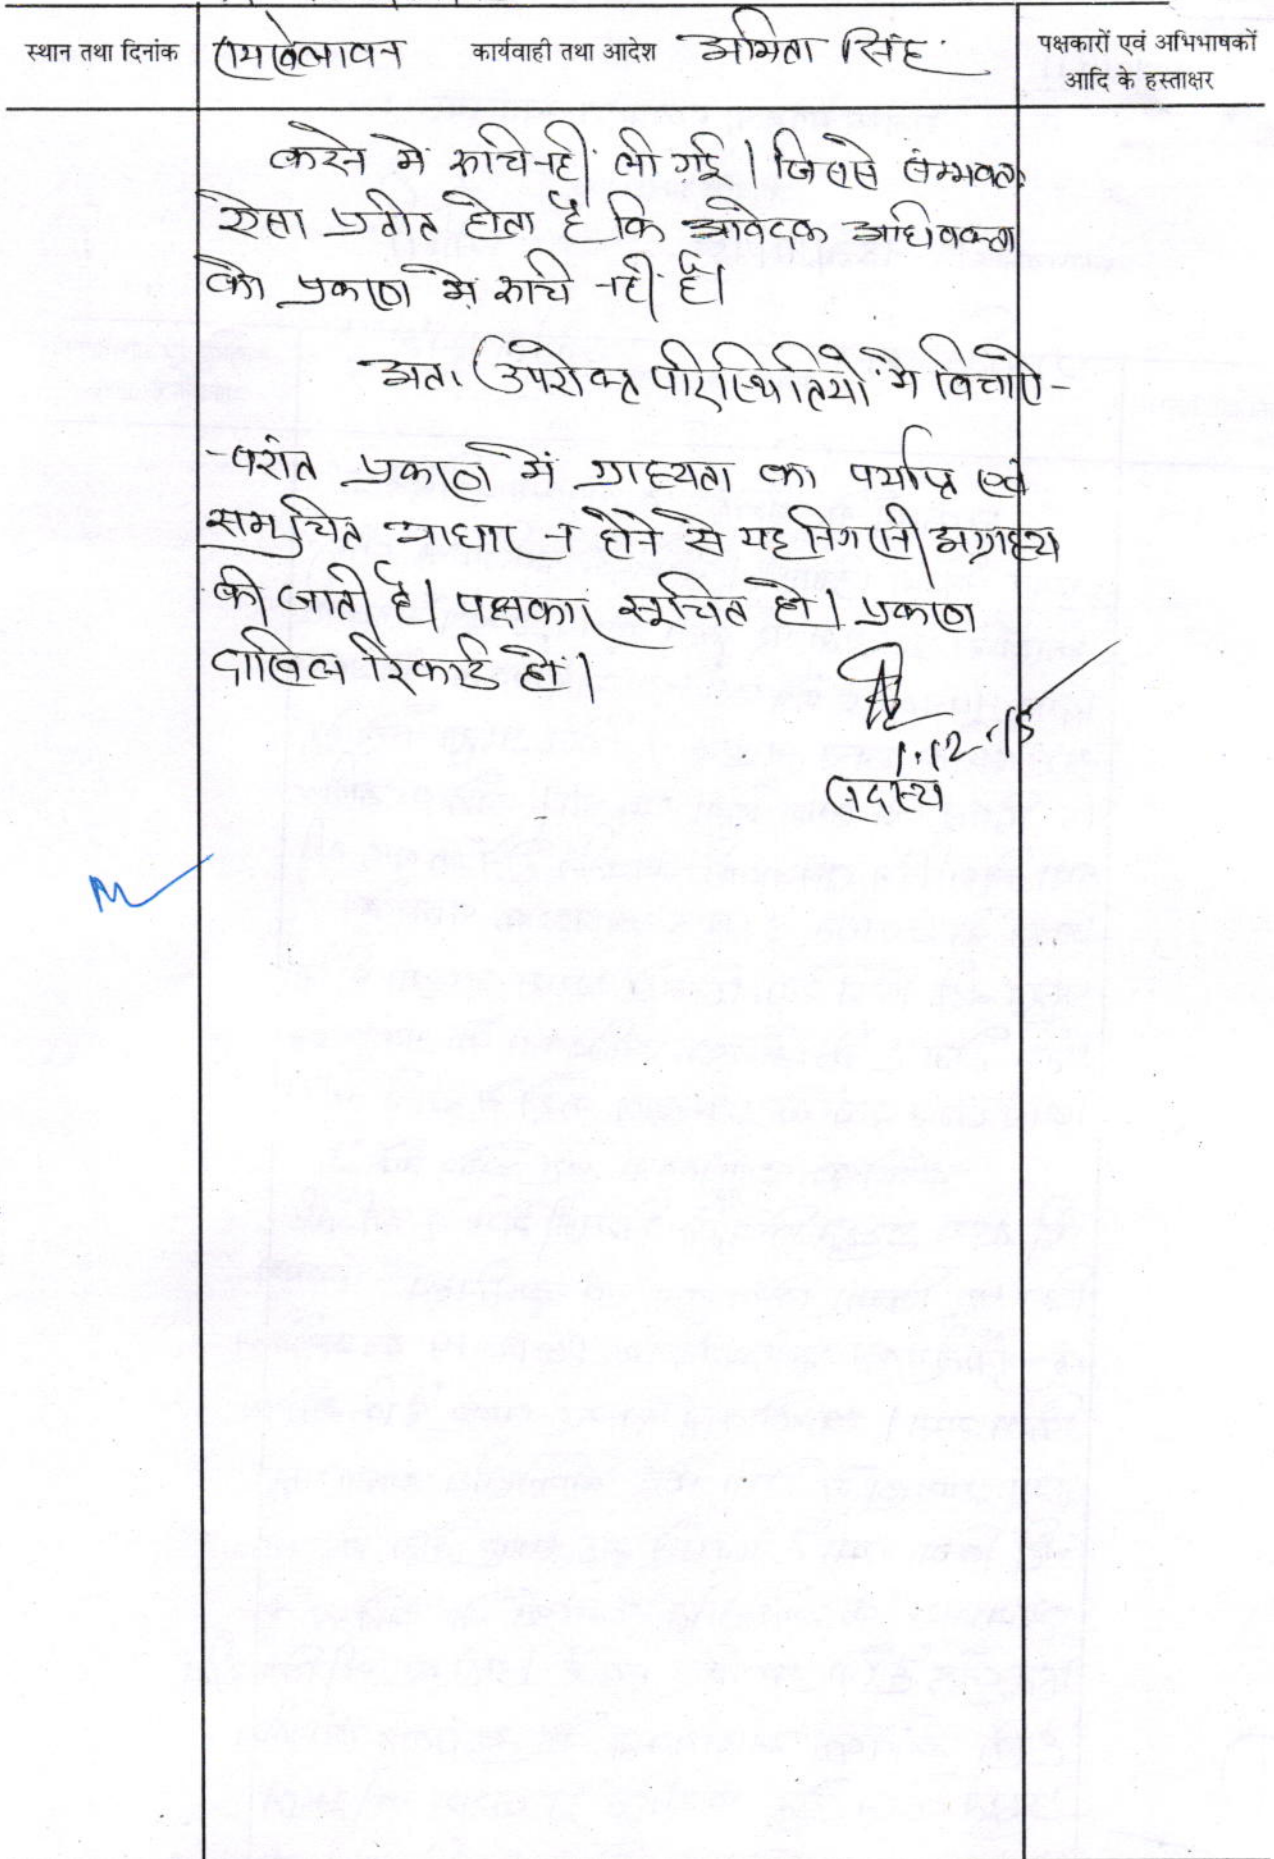 स्थान तथा दिनांक रामखेलावन कार्यवाही तथा आदेश अमिता सिंह पक्षकारों एवं अभिभाषकों
आदि के हस्ताक्षर
करने में रूचि नहीं ली गई। जिससे सम्भवतः
ऐसा प्रतीत होता है कि आवेदक अधिवक्ता
को प्रकरण में रूचि नहीं है।
अतः उपरोक्त परिस्थितियों में विचारो-
-परांत प्रकरण में ग्राह्यता का पर्याप्त एवं
समुचित आधार न होने से यह निगरानी अग्राह्य
की जाती है। पक्षकार सूचित हों। प्रकरण
दाखिल रिकार्ड हो।
1.12.15
सदस्य